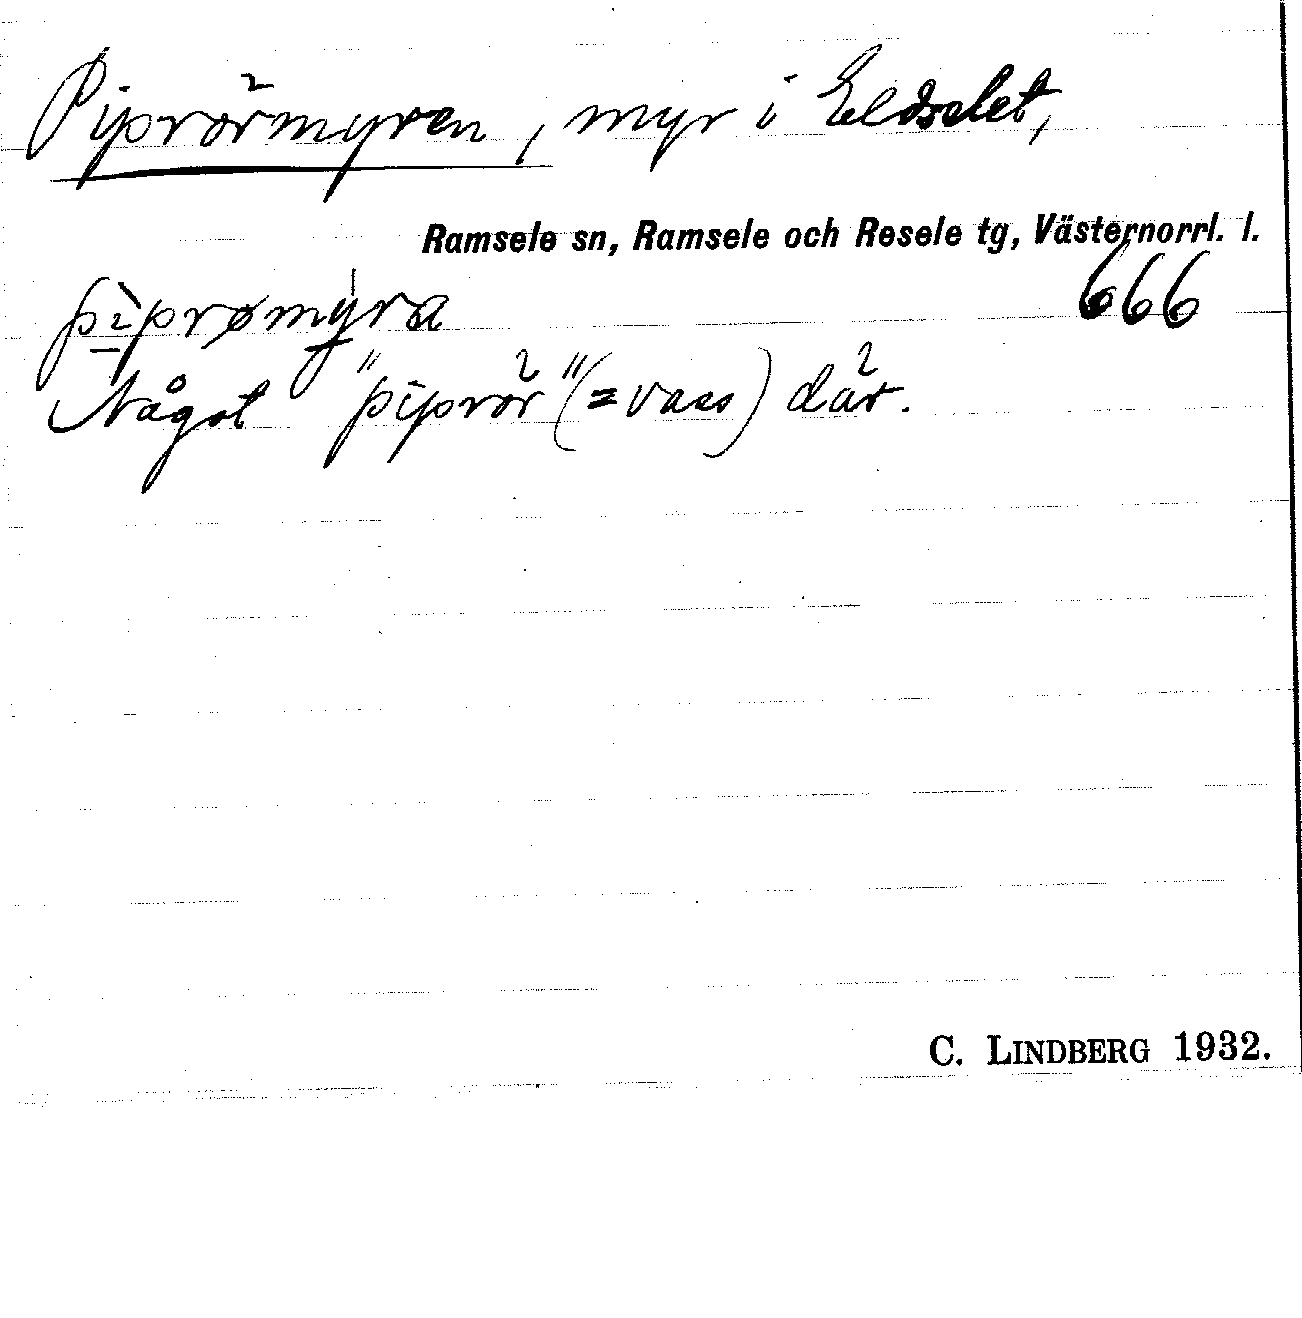 Piprörmyren, myr i Eldselet,
Ramsele sn, Ramsele och Resele tg, Västernorrl. l.
pìprømyra 666
Något "piprör" (=vass) där.
C. LINDBERG 1932.